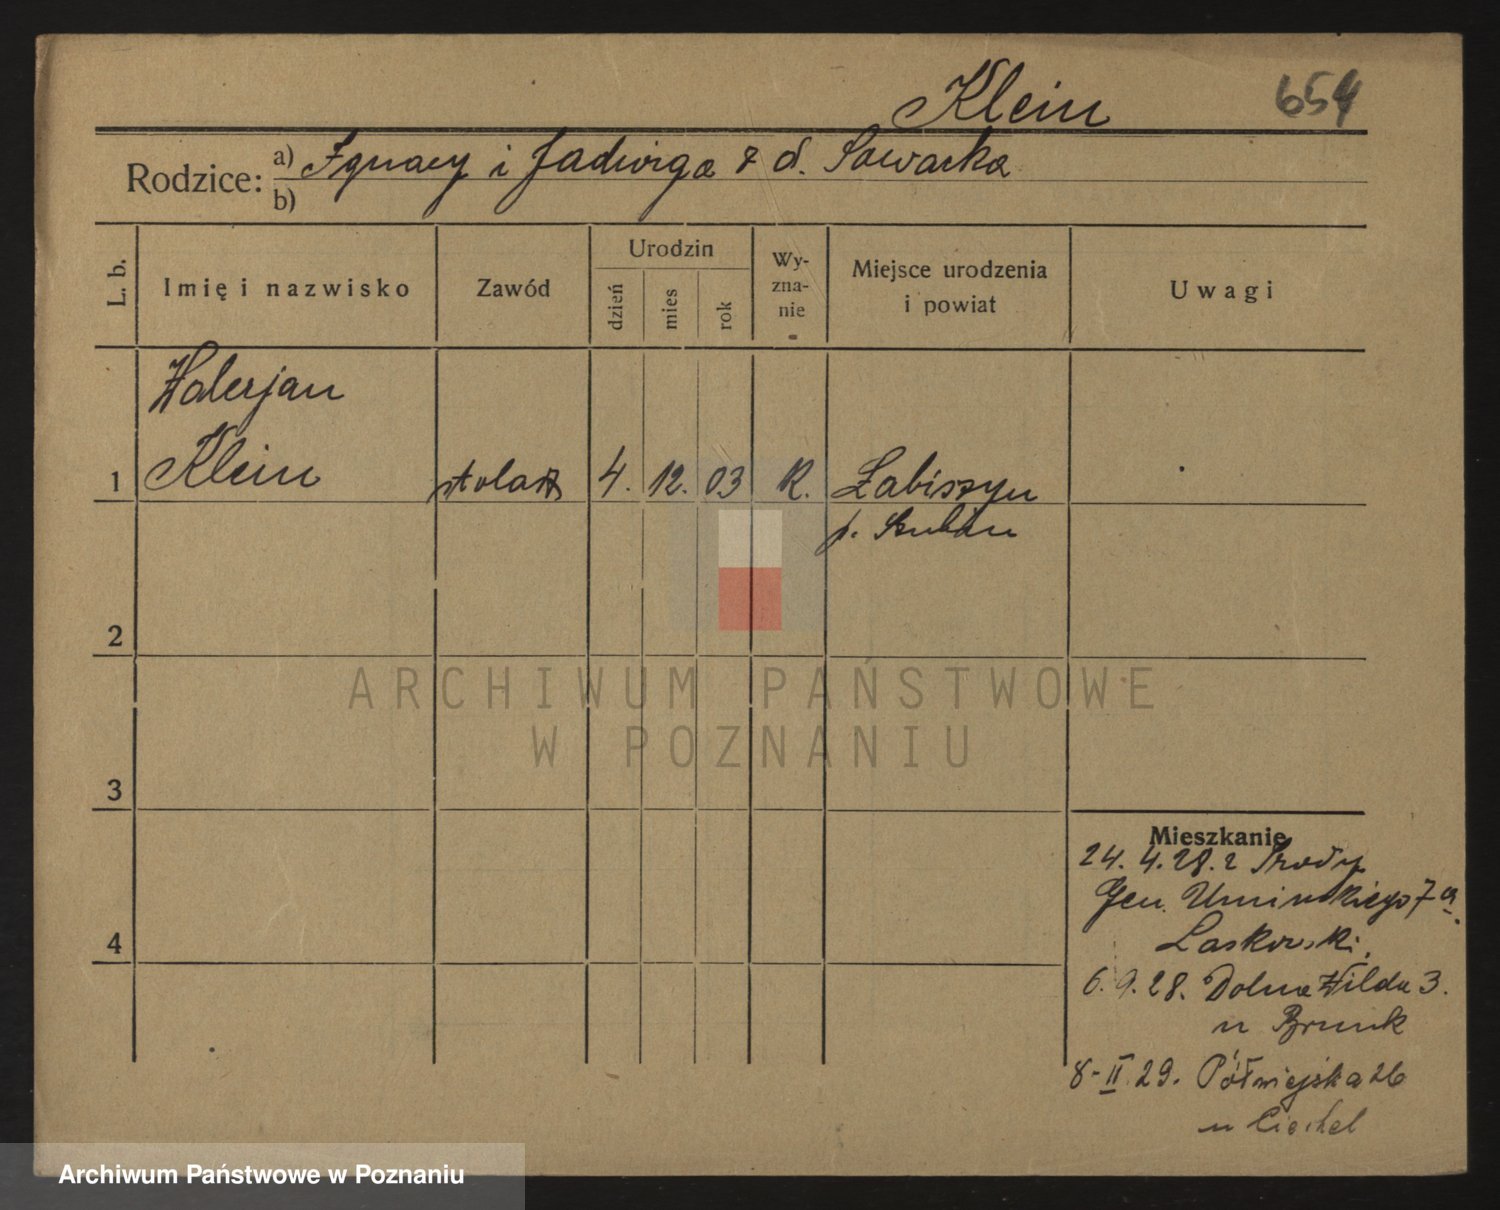 Klein 654
Rodzice: a) Ignacy i Jadwiga z d. Sowacka
b)
L. b. Imię i nazwisko Zawód Urodzin dzień mies rok Wy-zna-nie Miejsce urodzenia i powiat Uwagi
Walerjan
1 Klein stolarz 4. 12. 03 R. Łabiszyn
p. Szubin
2
ARCHIWUM PAŃSTWOWE
W POZNANIU
3
Mieszkanie
24. 4. 28. z
Gen. Umińskiego 7a
4 Laskowski
6. 9. 28. Dolna Wilda 3.
u Brunk
8-II 29. Półwiejska 26
u Ciechel
Archiwum Państwowe w Poznaniu